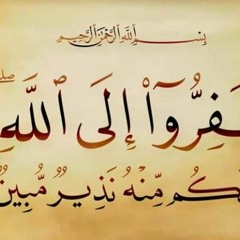 بِسْمِ اللَّهِ الرَّحْمَٰنِ الرَّحِيمِ
فِرُّوٓا۟ إِلَى ٱللَّهِ ۖ
لَكُم مِّنْهُ نَذِيرٌ مُّبِينٌ